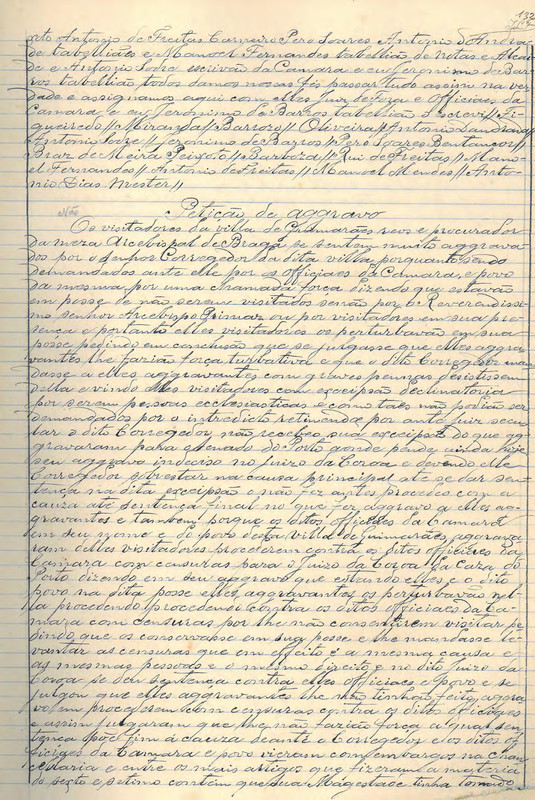 132
orto Antonio de Freitas Carneiro Pero Soares Antonio d'Andra-
de tabelliães e Manoel Fernandes tabellião de notas e Alcai-
de e Antonio Sodre escrivão da Camara e eu Jeronimo de Bar-
ros tabellião todos damos nossas fés passar tudo assim na ver-
dade e assignamos aqui com elles juiz de fora e officiaes da
Camara e eu Jeronimo de Barros tabellião o escrevi // Fi-
gueiredo // Miranda // Barrozo // Oliveira // Antonio
Antonio Sodre // Jeronimo de Barros // Pero Soares
Braz de Meira Peixoto // Barboza // Rui de Freitas // Mano-
el Fernandes // Antonio de Freitas // Manoel Mendes // Anto-
nio Dias Mester //
Petição de aggravo
Os visitadores da villa de Guimarães reos e procurador
da meza Arcebispal de Braga se sentem muito aggrava-
dos por o senhor Corregedor da dita villa porquanto sendo
demandados ante elle por os officiaes da Camara, e povo
da mesma por uma chamada força dizendo que estavão
em posse de não serem visitados senão por o Reverendissi-
mo senhor Arcebispo Primaz ou por visitadores em sua pre-
sença e portanto elles visitadores os perturbavão em sua
posse pedindo em conclusão que se julgasse que elles aggra-
vantes lhe fazião força turbativa e que o dito Corregedor man-
dasse a elles aggravantes com graves penas desistissem
della e vindo elles visitadores com excepsão declinatoria
por serem pessoas ecclesiasticas e como taes não podião ser
demandados por o intredicto retinendæ por ante juiz secu-
lar o dito Corregedor não recebeo sua excepsão do que ag-
gravaram para o senado do Porto aonde pende ainda hoje
seu aggravo indeciso no juizo da Coroa e devendo elle
Corregedor sobrestar na causa principal até se dar sen-
tença na dita excepsão o não fez antes procedeo com a
cauza até sentença final no que fez aggravo a elles ag-
gravantes e tambem porque os ditos officiaes da Camara
em seu nome e do povo desta villa de Guimarães, aggrava-
ram delles visitadores procederem contra os ditos officiaes da
Camara com censuras para o Juizo da Coroa da Caza do
Porto dizendo em seu aggravo que estando elles e o dito
povo na dita posse elles aggravantes os perturbavão nel-
la procedendo procedendo contra os ditos officiaes da Ca-
mara com censuras por lhe não consentirem visitar pe-
dindo que os conservasse em sua posse e lhe mandasse le-
vantar as censuras que em effeito é a mesma causa e
as mesmas pessoas e o mesmo direito e no dito Juizo da
Coroa se deu sentença contra elles officiaes e povo e se
julgou que elles aggravantes lhe não tinhão feito aggra-
vo em procederem com censuras contra os ditos officiaes
e assim julgaram que lhe não fazião força a qual sen-
tença poz fim á cauza deante o Corregedor e os ditos of-
ficiaes da Camara e povo vieram com embargos na chan-
cellaria e entre os mais artigos que fizeram a materia
do sexto e setimo contem que sua Magestade tinha tomado